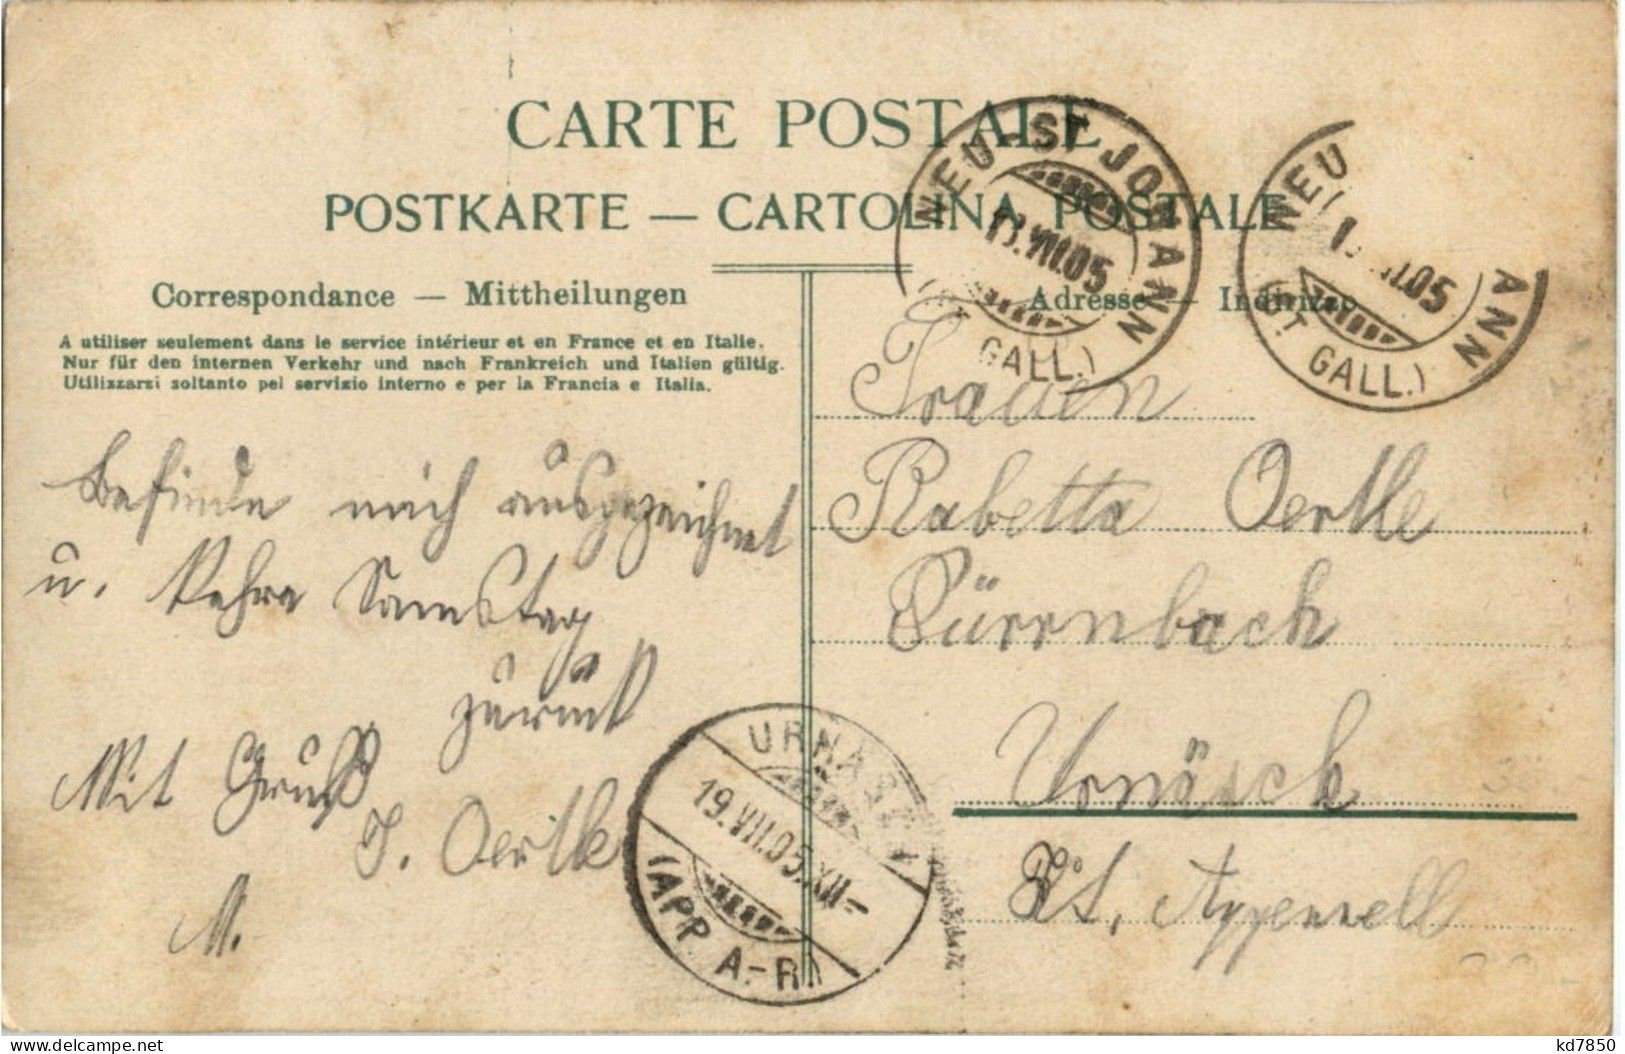 CARTE POSTALE
POSTKARTE — CARTOLINA POSTALE
Correspondance — Mittheilungen
A utiliser seulement dans le service intérieur et en France et en Italie.
Nur für den internen Verkehr und nach Frankreich und Italien gültig.
Utilizzarsi soltanto pel servizio interno e per la Francia e Italia.
Adresse — Indirizzo
NEU-ST JOHANN
VII.05
(ST GALL.)
NEU ANN
.05
(ST GALL.)
Befinde mich ausgezeichnet
u. kehre Samstag
zurück
Mit Gruß
J. Oertle
M.
Frauen
Babetta Oertle
Dürrnbach
Urnäsch
Kt. Appenzell
URNÄSCH
19.VII.05.XII–
(APP. A.-R.)
kd7850